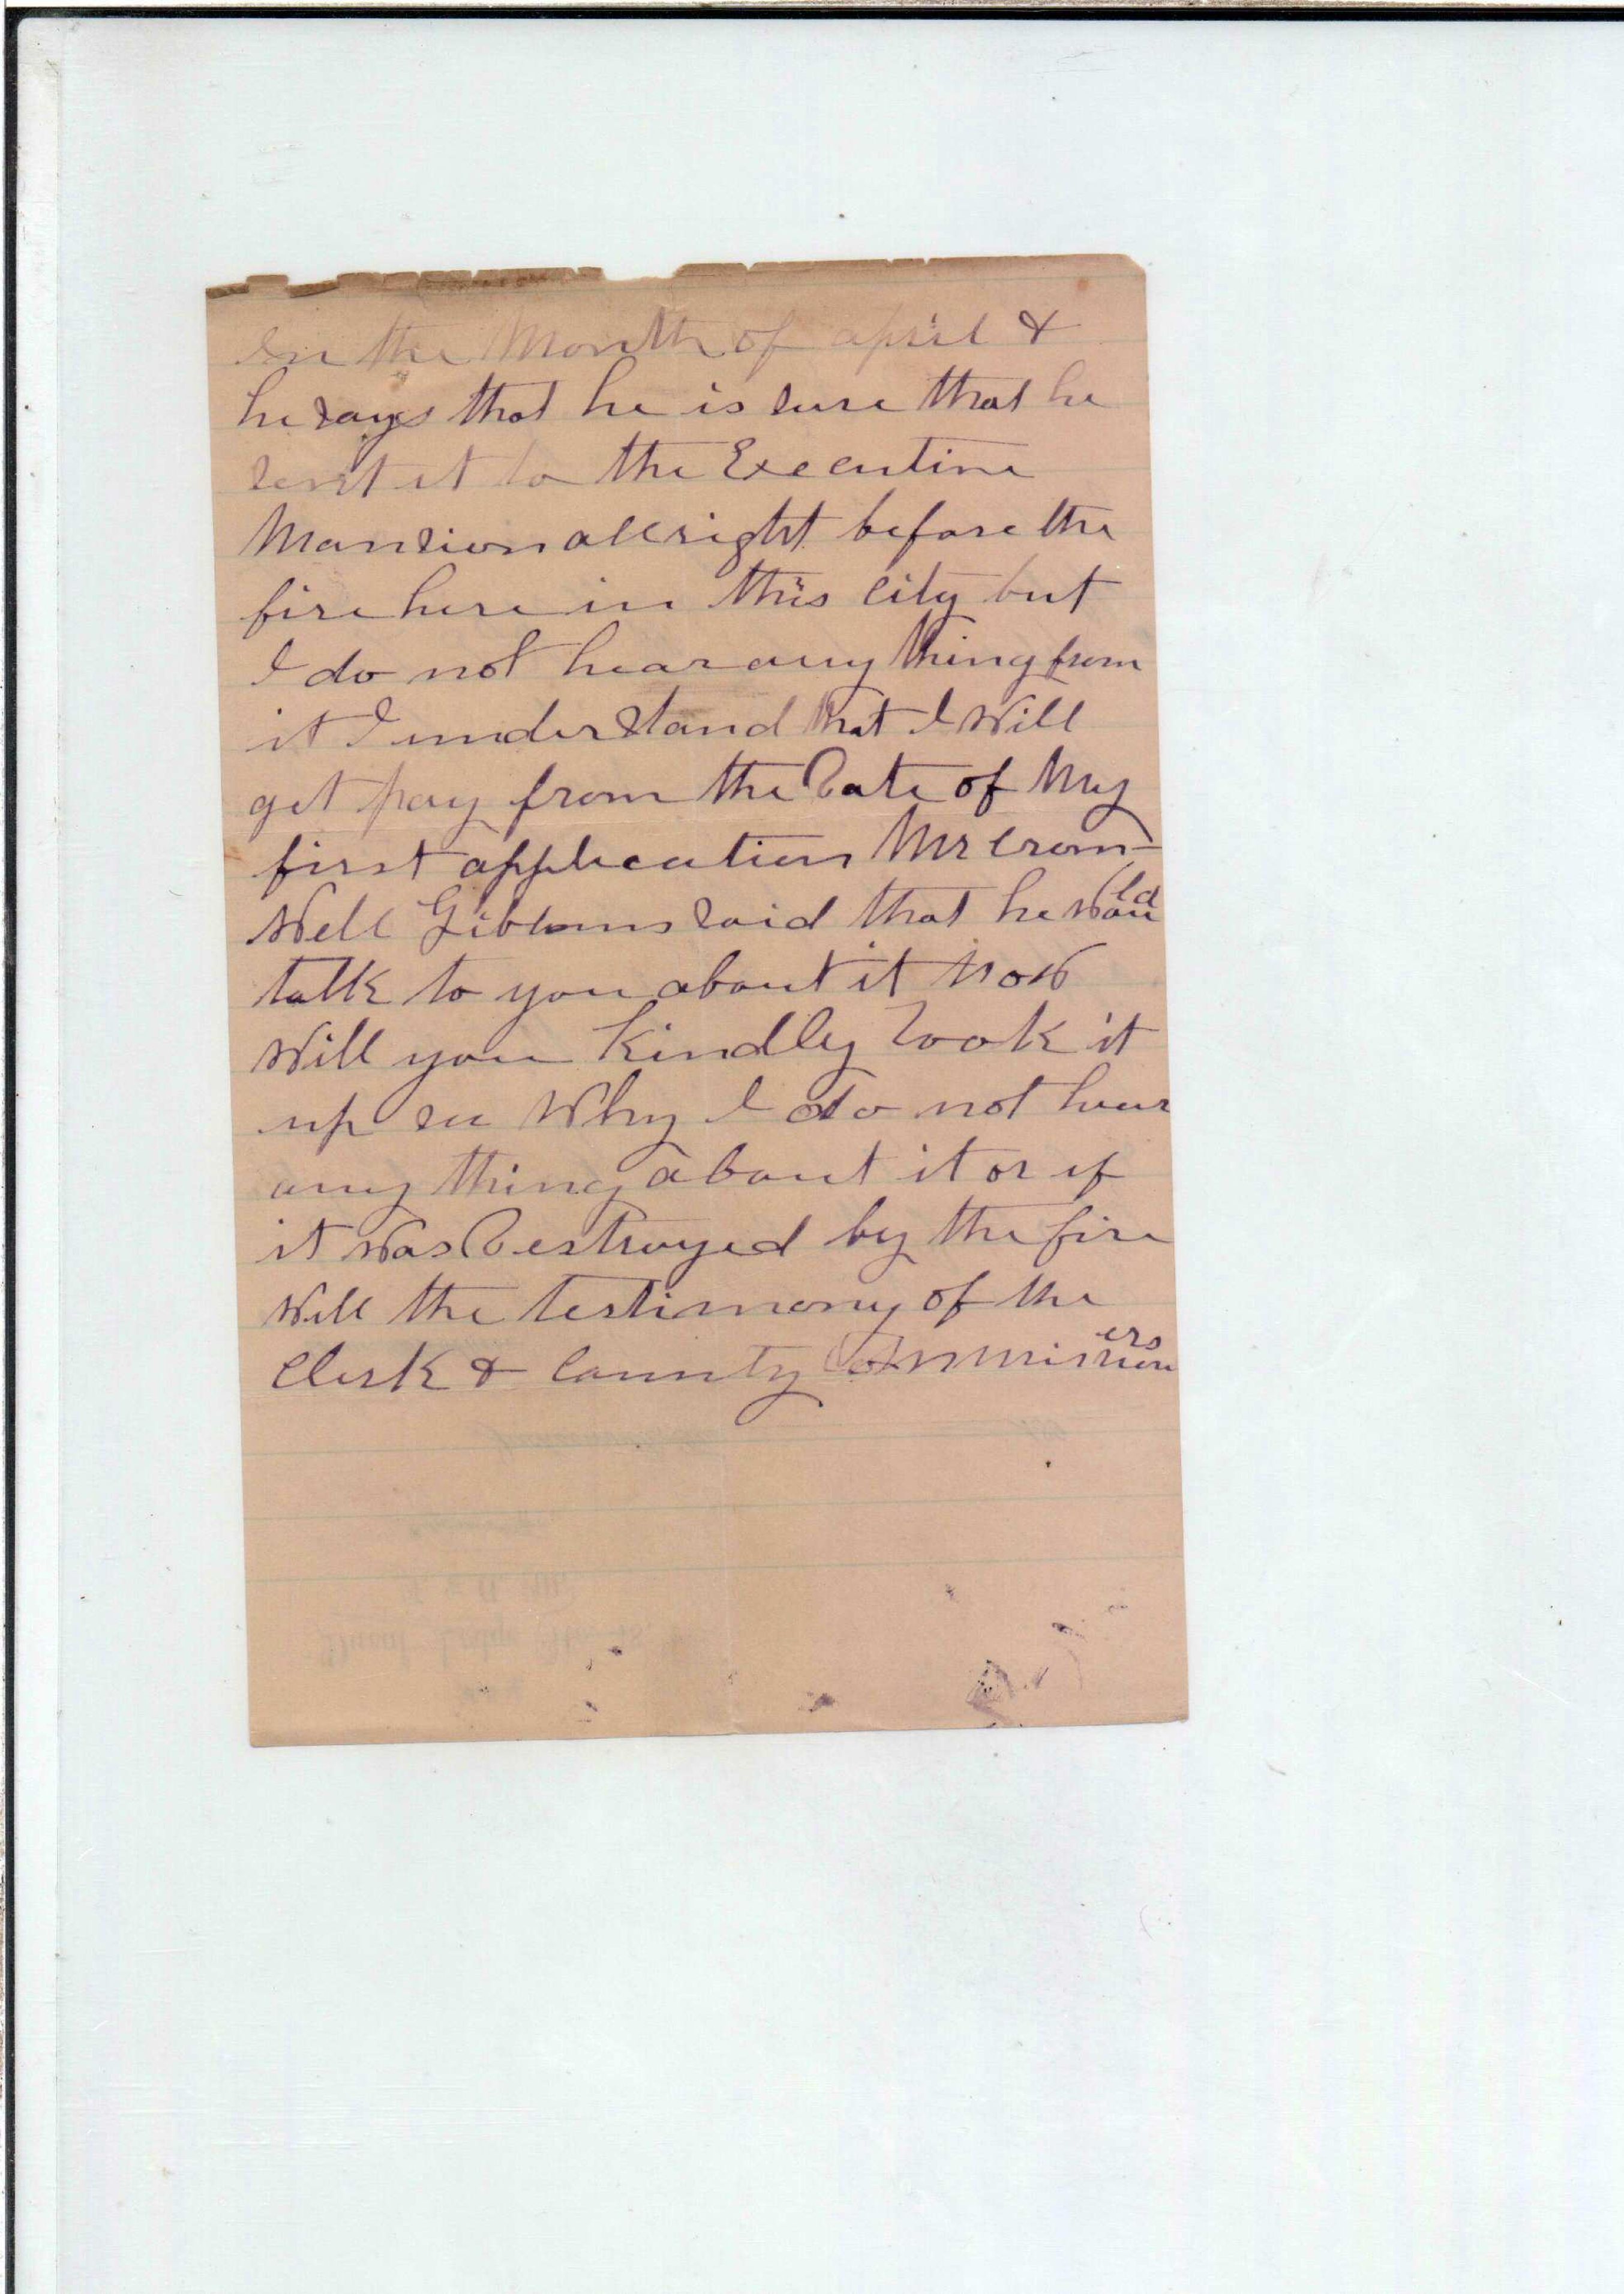 In the Month of april &
he says that he is sure that he
sent it to the Executive
Mansion all right before the
fire here in this City but
I do not hear any thing from
it I understand that I Will
get pay from the Date of My
first application Mr Crom-
Well Gibbons said that he Would
talk to you about it Now
Will you Kindly look it
up see Why I do not hear
any thing about it or if
it Was Destroyed by the fire
Will the testimony of the
Clerk & County Commissioners